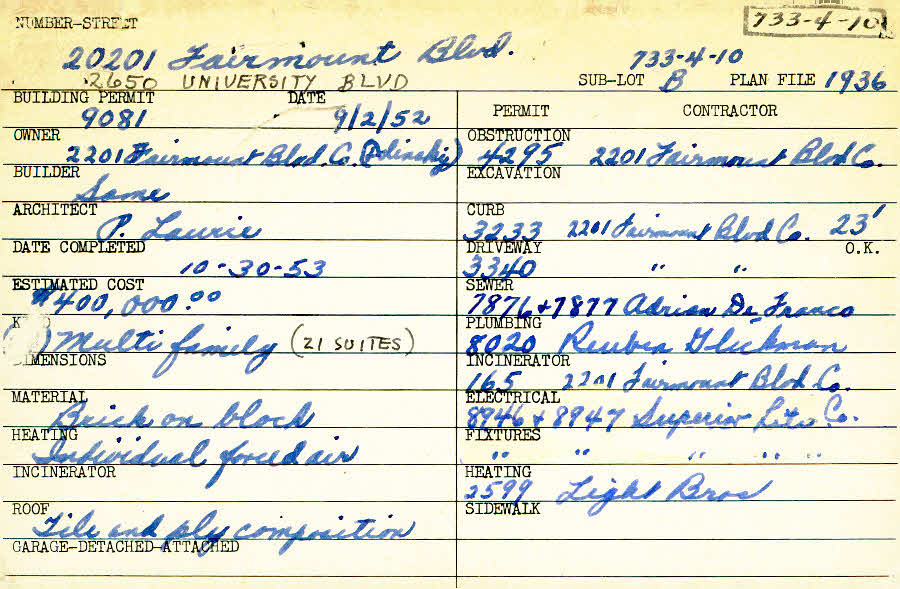 NUMBER-STREET
733-4-10
20201 Fairmount Blvd.
733-4-10
2650 UNIVERSITY BLVD
SUB-LOT B PLAN FILE 1936
BUILDING PERMIT DATE
9081 9/2/52
OWNER
2201 Fairmount Blvd. Co. (Polinsky)
BUILDER
Same
ARCHITECT
P. Laurie
DATE COMPLETED
10-30-53
ESTIMATED COST
$400,000.00
Multi family (21 SUITES)
DIMENSIONS
MATERIAL
Brick on block
HEATING
Individual forced air
INCINERATOR
ROOF
Tile and ply composition
GARAGE-DETACHED-ATTACHED
PERMIT CONTRACTOR
OBSTRUCTION
4295 2201 Fairmount Blvd Co.
EXCAVATION
CURB
3233 2201 Fairmount Blvd Co. 23'
DRIVEWAY O.K.
3340 " "
SEWER
7876 + 7877 Adrian De Franco
PLUMBING
8020 Reuben Glickman
INCINERATOR
165 2201 Fairmount Blvd Co.
ELECTRICAL
8946 + 8947 Superior Co.
FIXTURES
" " " " "
HEATING
2599 Light Bros
SIDEWALK